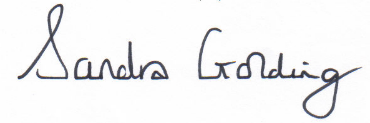 Sandra Golding